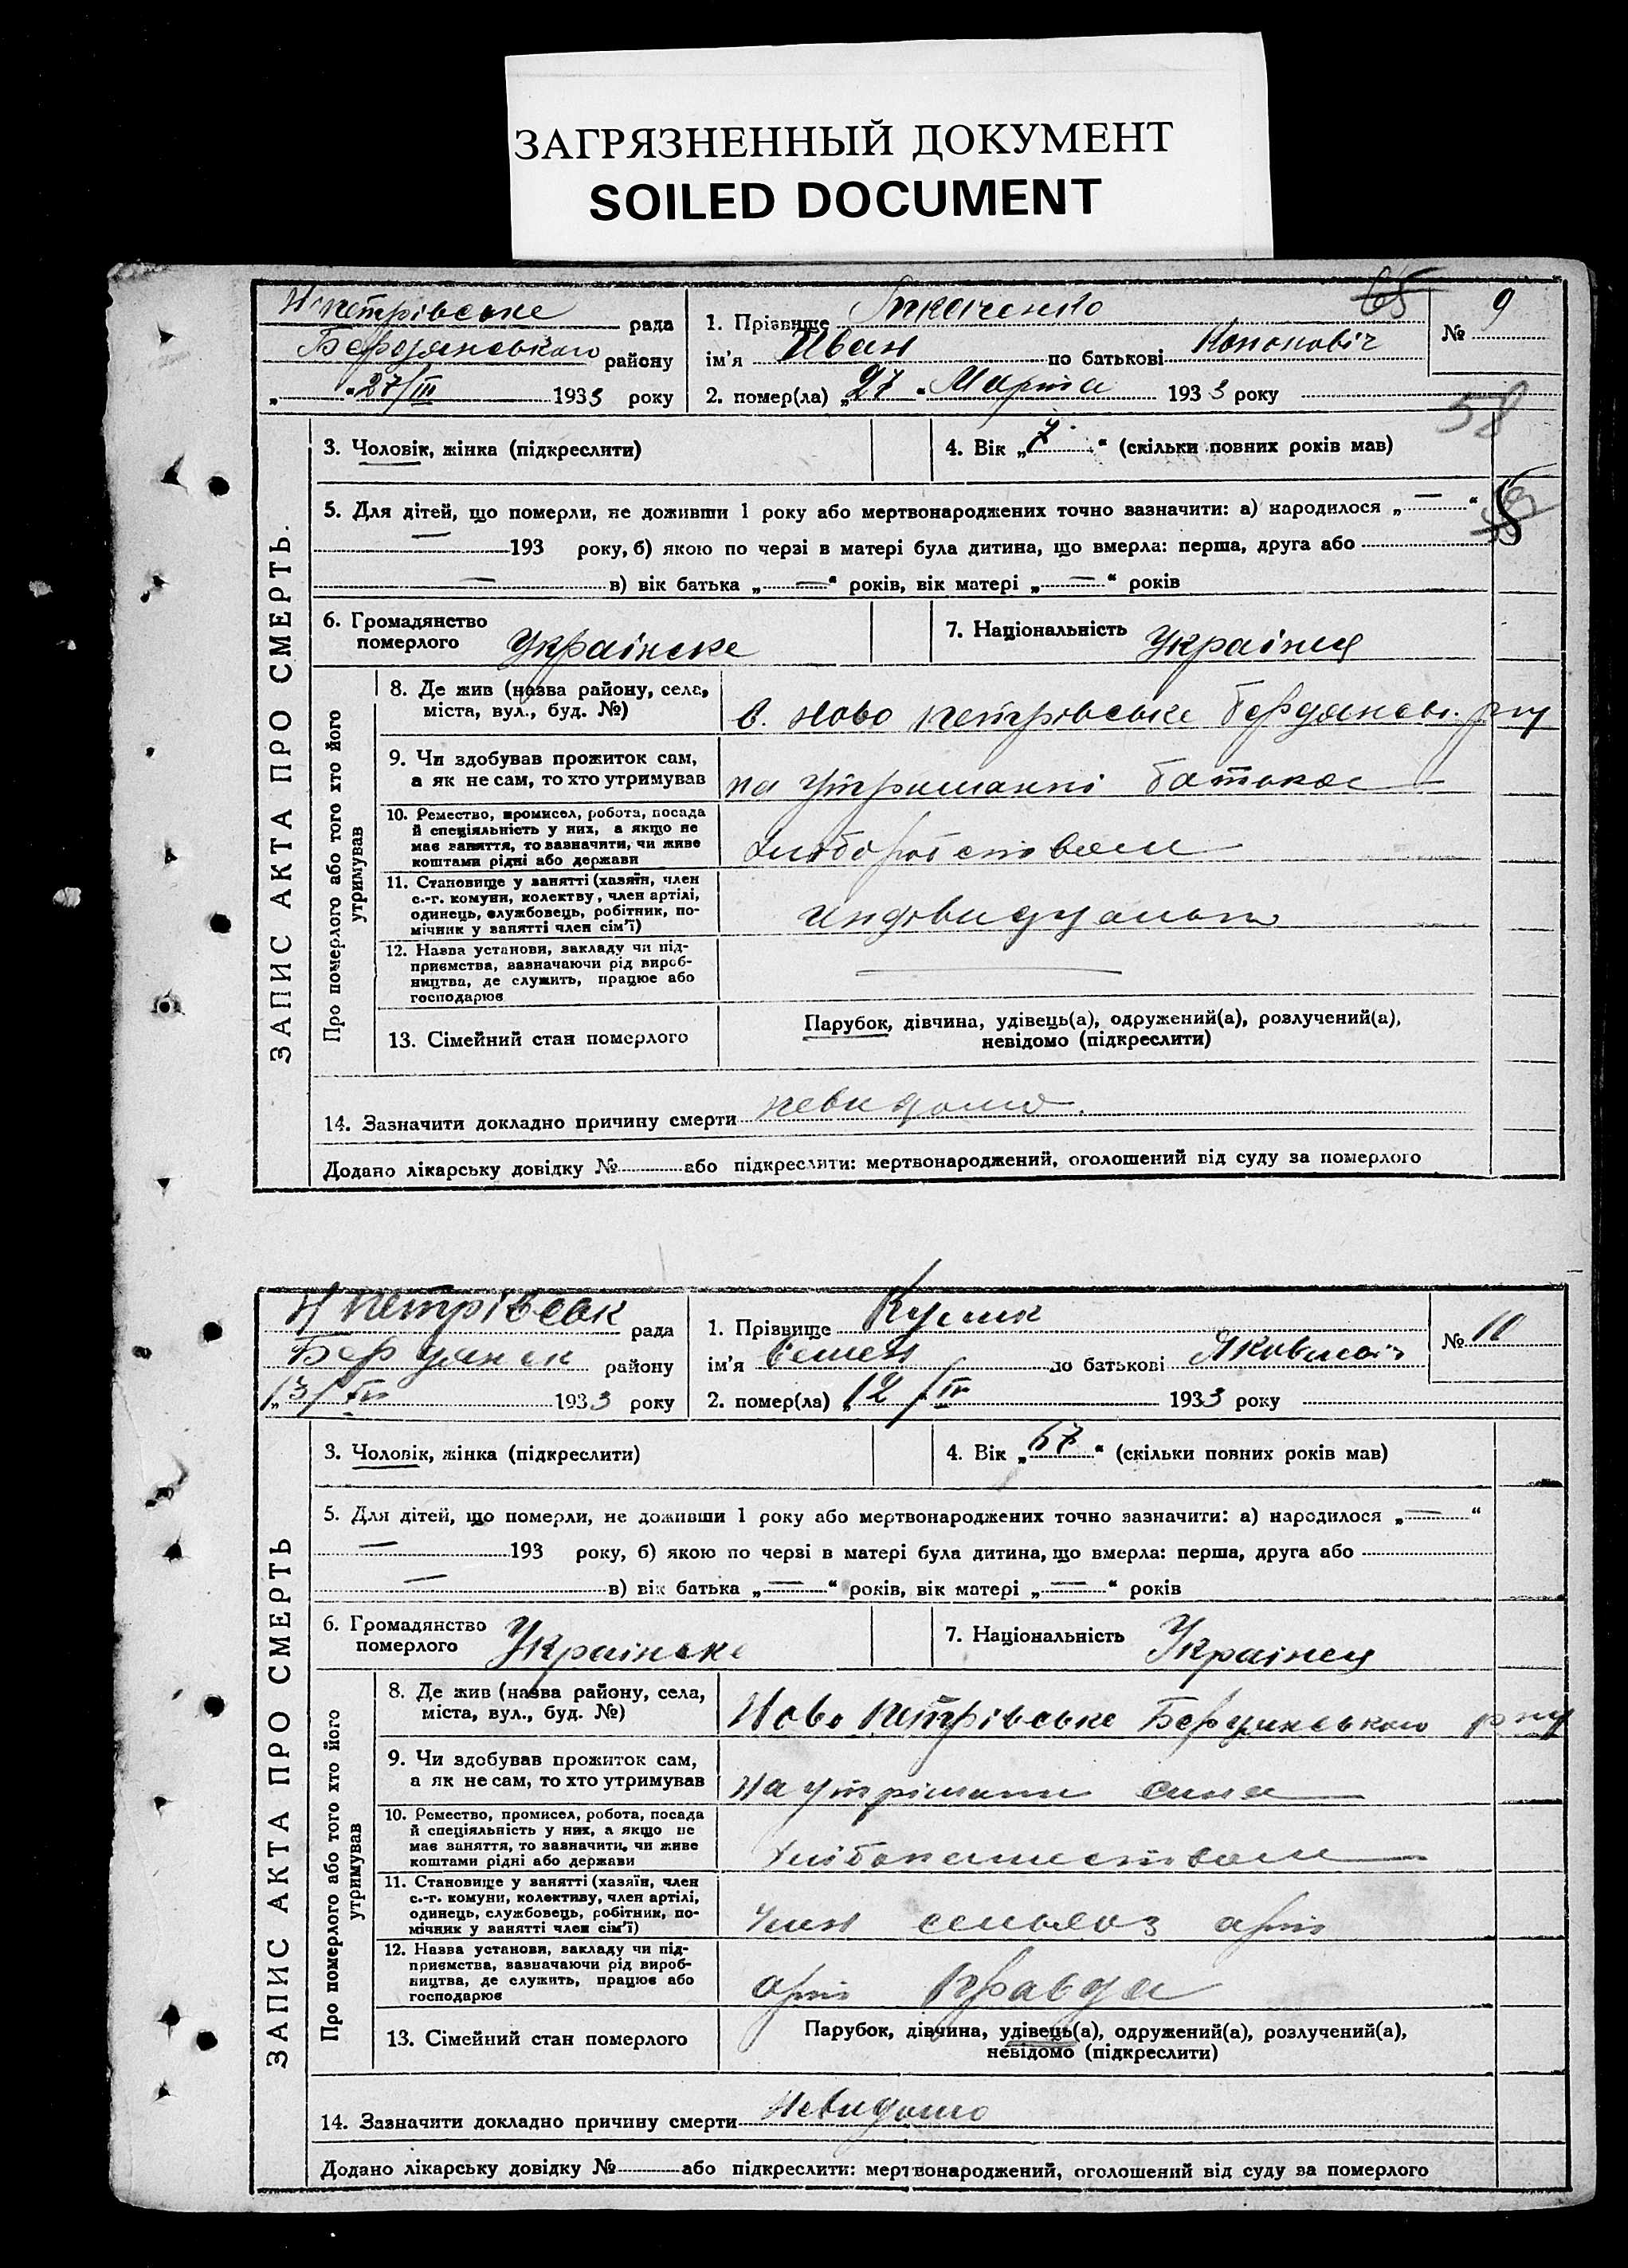 ЗАГРЯЗНЕННЫЙ ДОКУМЕНТ
SOILED DOCUMENT
Н петрівське рада
Бердянського району
„ “ 27/III 1933 року
65
1. Прізвище Ткаченко
ім'я Иван по батькові Кононовіч
2. помер(ла) „27“ Марта 1933 року
№ 9
58
3. Чоловік, жінка (підкреслити)
4. Вік „7“ (скільки повних років мав)
5. Для дітей, що померли, не доживши 1 року або мертвонароджених точно зазначити: а) народилося „—“
— 193 року, б) якою по черзі в матері була дитина, що вмерла: перша, друга або
— в) вік батька „—“ років, вік матері „—“ років
6. Громадянство
померлого Українске
7. Національність Українец
ЗАПИС АКТА ПРО СМЕРТЬ.
Про померлого або того хто його
утримував
8. Де жив (назва району, села,
міста, вул., буд. №)
в. Ново петрівське Бердянськ. р-ну
9. Чи здобував прожиток сам,
а як не сам, то хто утримував
на утриманні батька
10. Ремество, промисел, робота, посада
й спеціяльність у них, а якщо не
має заняття, то зазначити, чи живе
коштами рідні або держави
11. Становище у занятті (хазяїн, член
с.-г. комуни, колектву, член артілі,
одинець, службовець, робітник, по-
мічник у занятті член сім'ї)
12. Назва установи, закладу чи під-
приємства, зазначаючи рід вироб-
ництва, де служить, працює або
господарює
13. Сімейний стан померлого
Парубок, дівчина, удівець(а), одружений(а), розлучений(а),
невідомо (підкреслити)
14. Зазначити докладно причину смерти невидомо.
Додано лікарську довідку № або підкреслити: мертвонароджений, оголошений від суду за померлого
Н петрівськ рада
Бердянск району
„13/IV 1933 року
1. Прізвище Кулик
ім'я Семен по батькові
2. помер(ла) „12/IV 1933 року
№ 10
3. Чоловік, жінка (підкреслити)
4. Вік „67“ (скільки повних років мав)
5. Для дітей, що померли, не доживши 1 року або мертвонароджених точно зазначити: а) народилося „—“
— 193 року, б) якою по черзі в матері була дитина, що вмерла: перша, друга або
— в) вік батька „—“ років, вік матері „—“ років
6. Громадянство
померлого Українске
7. Національність Українец
ЗАПИС АКТА ПРО СМЕРТЬ
Про померлого або того хто його
утримував
8. Де жив (назва району, села,
міста, вул., буд. №)
Ново петрівське Бердянського р-ну
9. Чи здобував прожиток сам,
а як не сам, то хто утримував
на утрімани сина
10. Ремество, промисел, робота, посада
й спеціяльність у них, а якщо не
має заняття, то зазначити, чи живе
коштами рідні або держави
11. Становище у занятті (хазяїн, член
с.-г. комуни, колективу, член артілі,
одинець, службовець, робітник, по-
мічник у занятті член сім'ї)
член сельхоз арт
12. Назва установи, закладу чи під-
приємства, зазначаючи рід вироб-
ництва, де служить, працює або
господарює
арт Правда
13. Сімейний стан померлого
Парубок, дівчина, удівець(а), одружений(а), розлучений(а),
невідомо (підкреслити)
14. Зазначити докладно причину смерти Невидомо
Додано лікарську довідку № або підкреслити: мертвонароджений, оголошений від суду за померлого